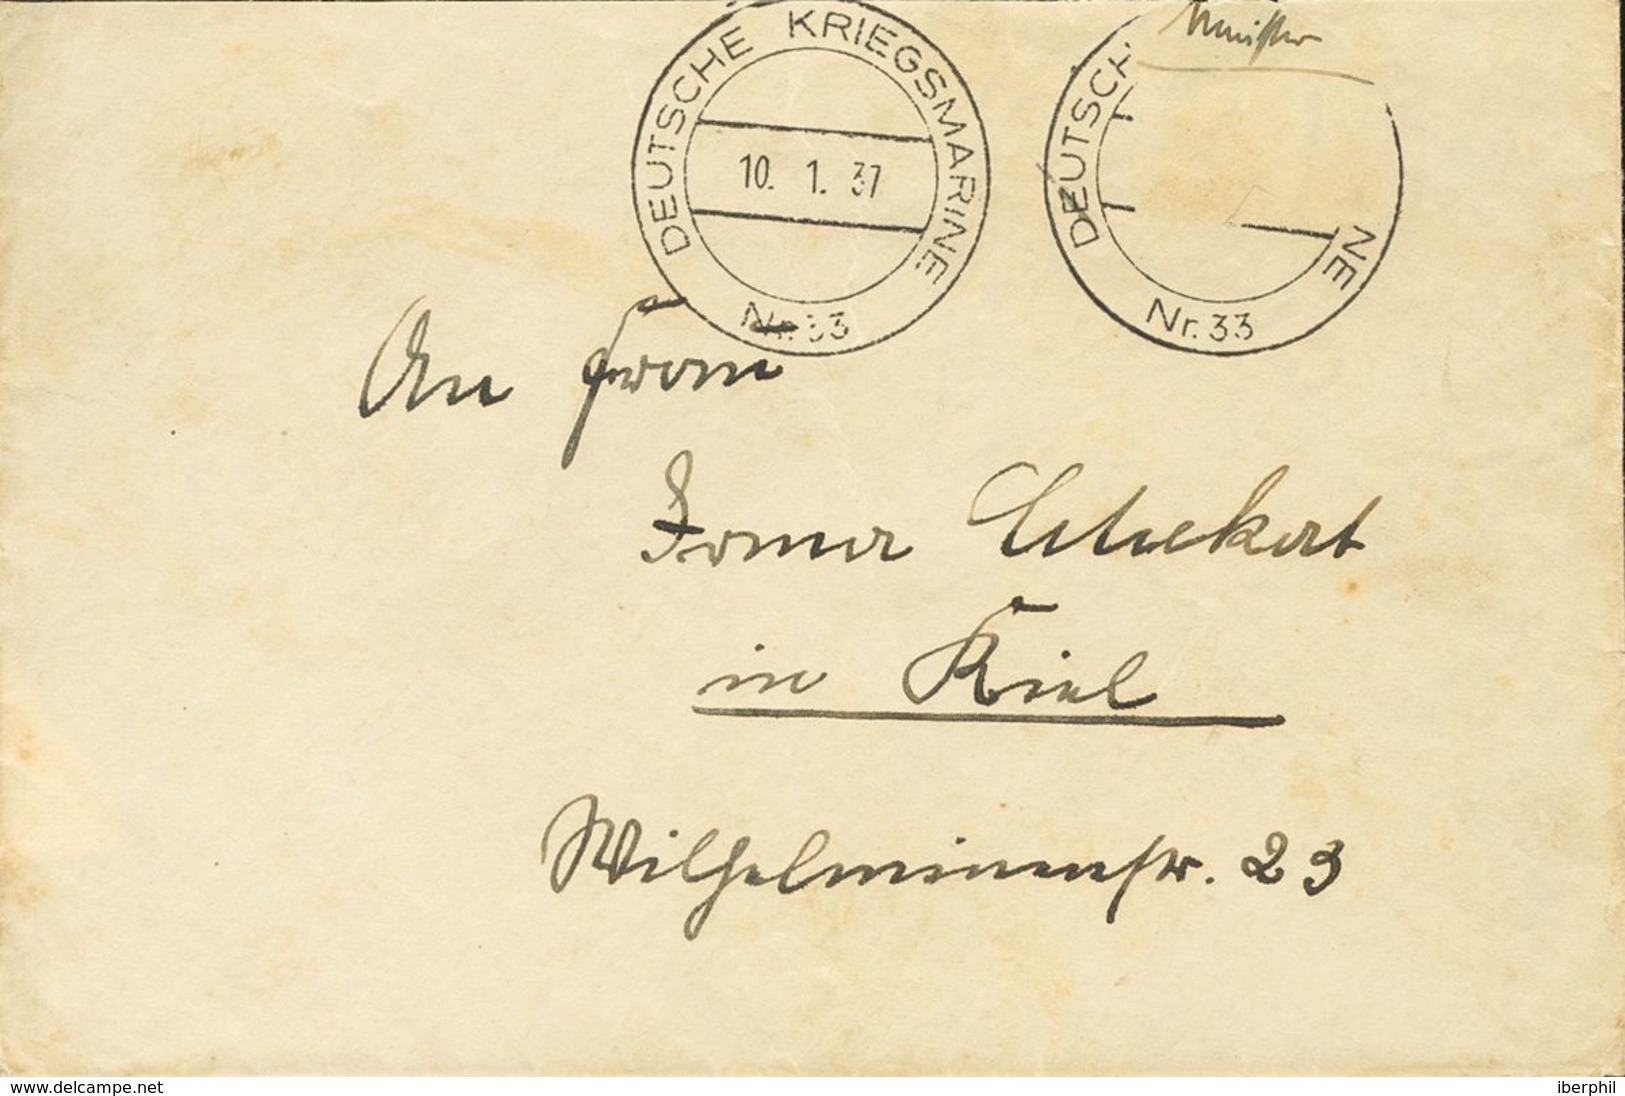 DEUTSCHE KRIEGSMARINE
10. 1. 37
Nr. 33
DEUTSCH NE
Nr. 33
An Frau
Irma
in Kiel
Wilhelminenstr. 23
www.delcampe.net
iberphil